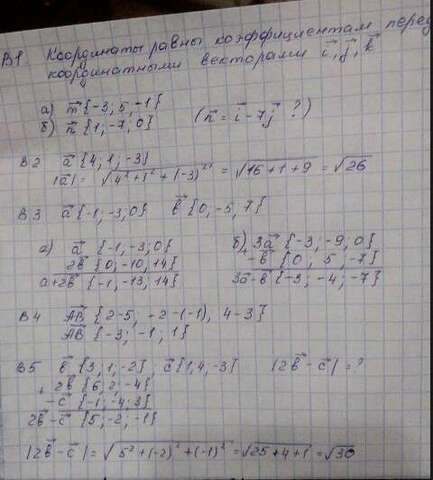 В1. Координаты равны коэффициентам перед
координатными векторами i⃗, j⃗, k⃗
а) m⃗ {-3; 5; -1}
б) n⃗ {1; -7; 0} (n⃗ = i⃗ - 7j⃗ ?)
В2 a⃗ {4; 1; -3}
|a⃗| = √(4² + 1² + (-3)²) = √(16 + 1 + 9) = √26
В3 a⃗ {-1; -3; 0} b⃗ {0; -5; 7}
а) a⃗ {-1; -3; 0} б) 3a⃗ {-3; -9; 0}
2b⃗ {0; -10; 14} -b⃗ {0; 5; -7}
a+2b⃗ {-1; -13; 14} 3a⃗-b⃗ {-3; -4; -7}
В4 AB⃗ {2-5; -2-(-1), 4-3}
AB⃗ {-3; -1; 1}
В5 b⃗ {3; 1; -2}, c⃗ {1, 4, -3} |2b⃗ - c⃗| = ?
+ 2b⃗ {6; 2; -4}
-c⃗ {-1; -4; 3}
2b⃗ - c⃗ {5; -2; -1}
|2b⃗ - c⃗| = √(5² + (-2)² + (-1)²) = √(25 + 4 + 1) = √30